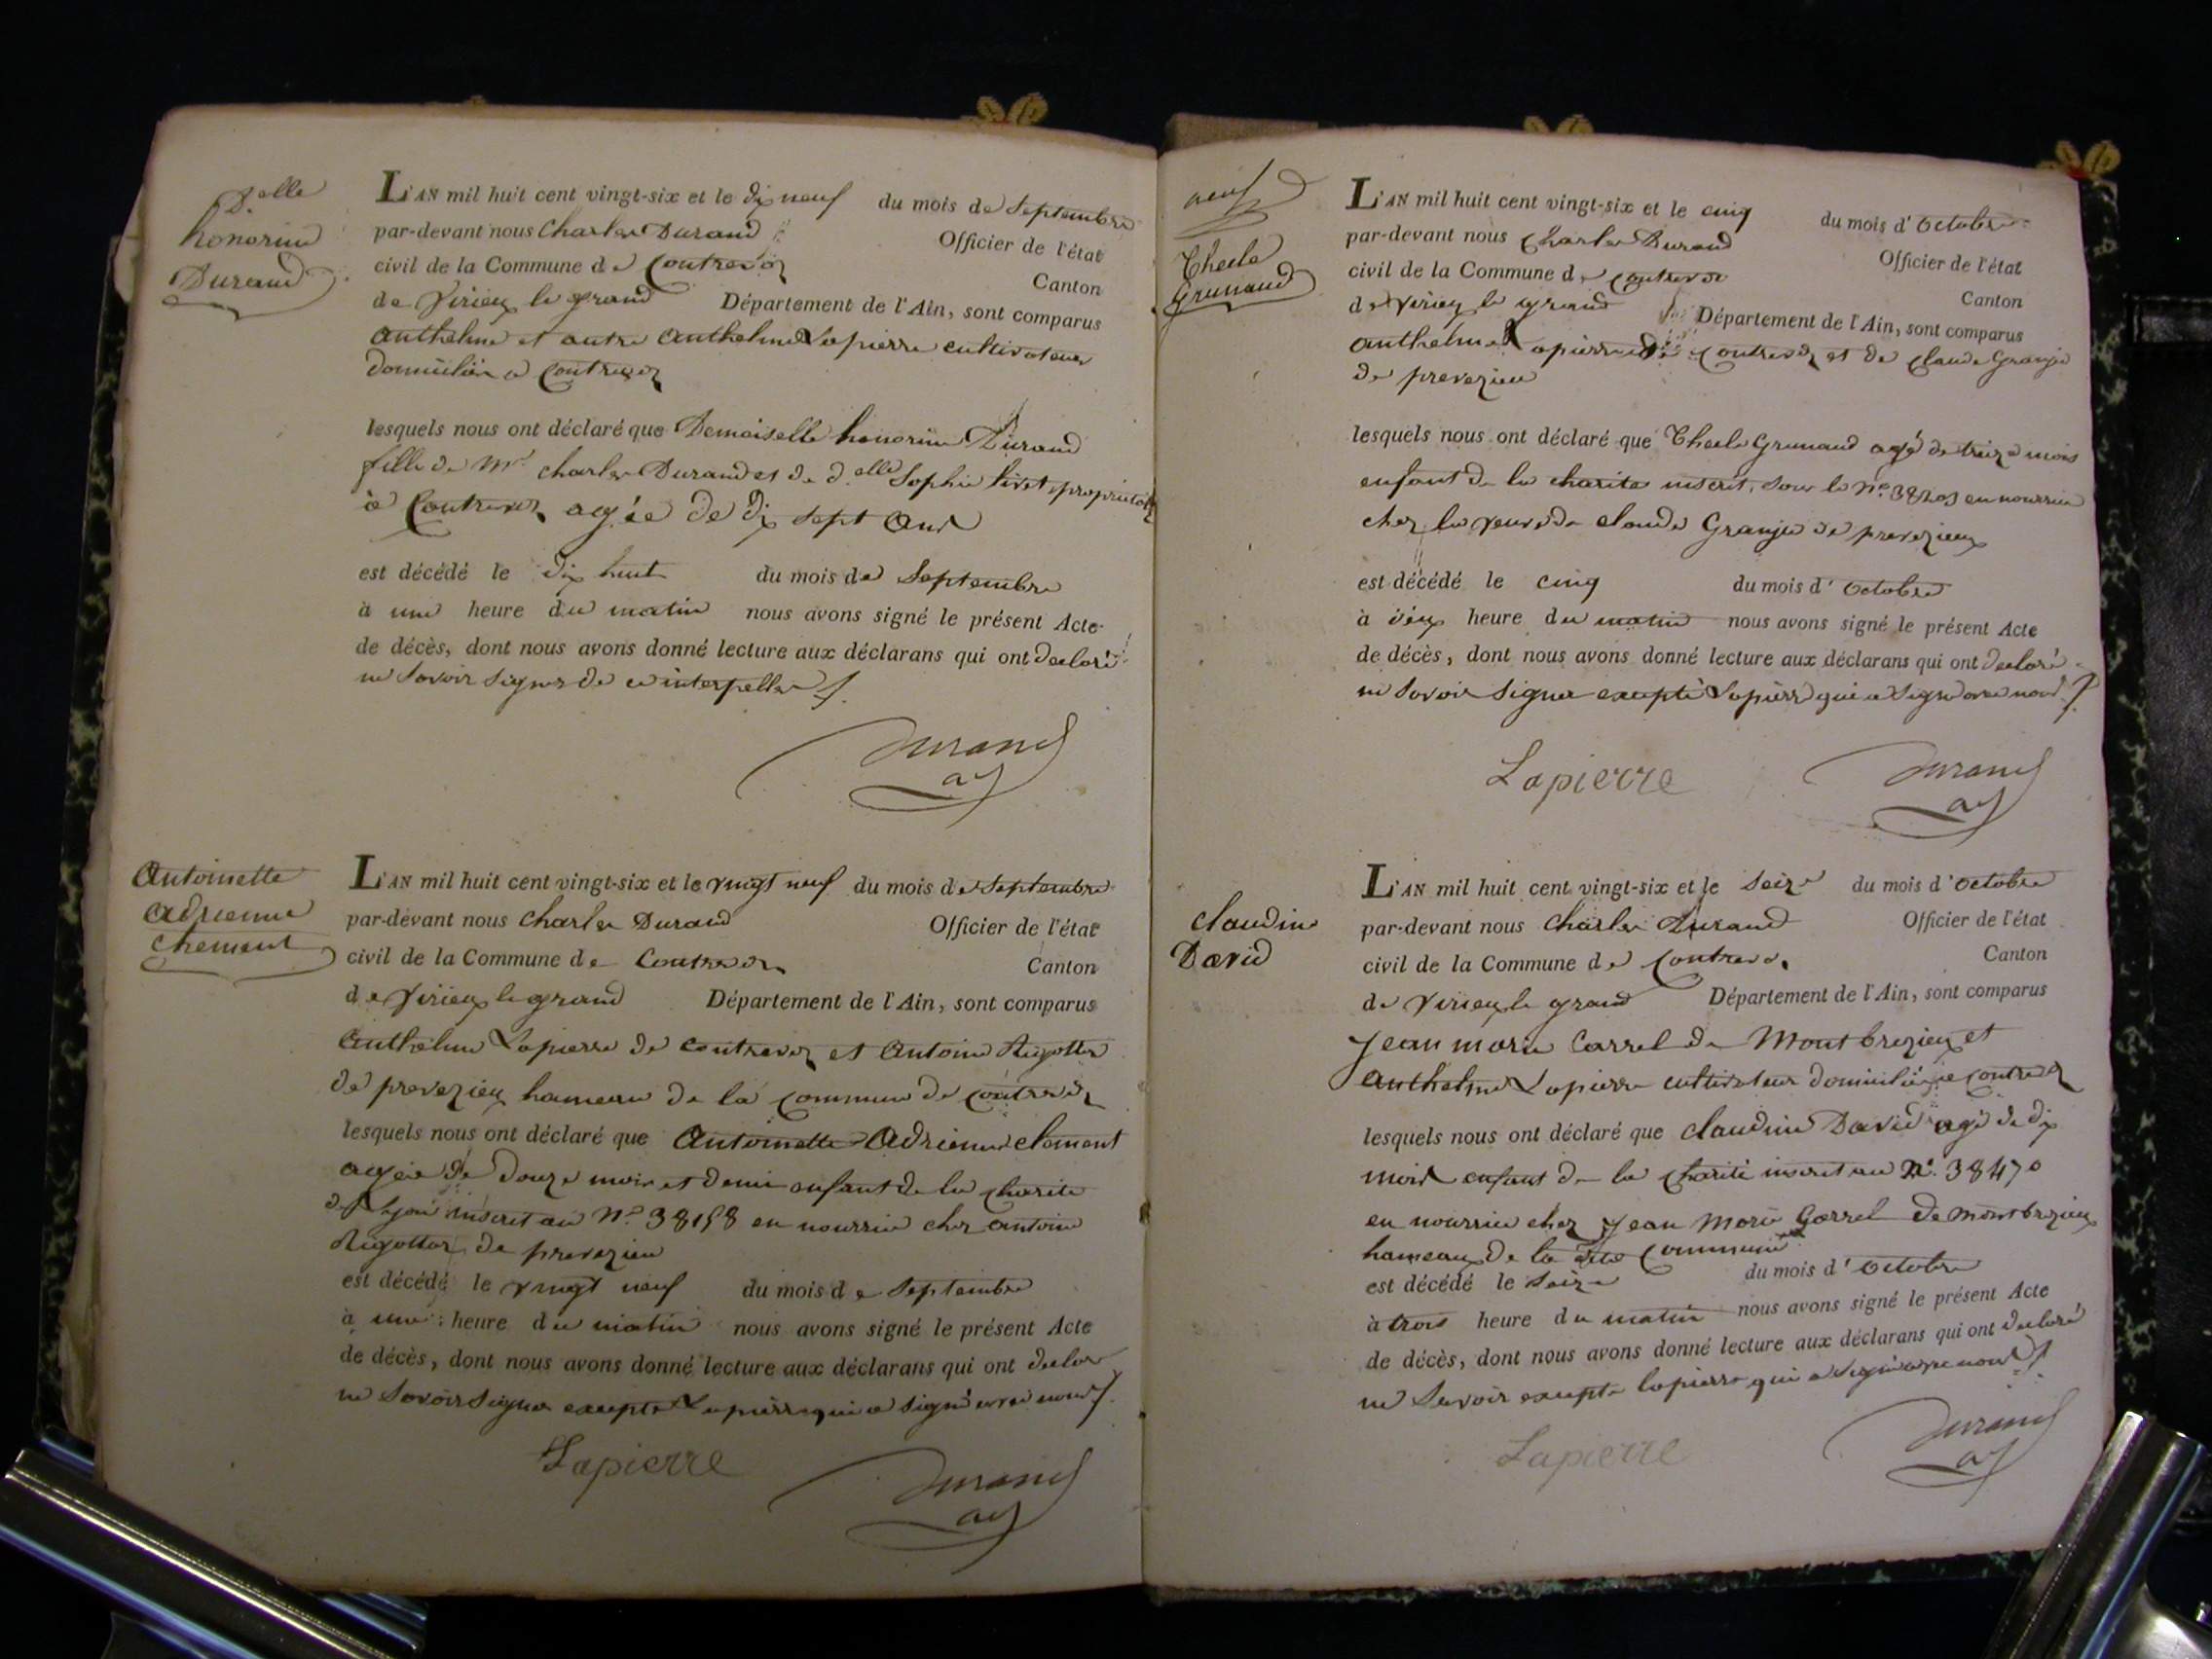 D.elle
honorine
Durand
L'AN mil huit cent vingt-six et le dix neuf du mois de Septembre
par-devant nous Charles Durand Officier de l'état
civil de la Commune de Contrevoz Canton
de Virieu le grand Département de l'Ain, sont comparus
anthelme et autre anthelme Lapierre cultivateurs
domiciliés a Contrevoz
lesquels nous ont déclaré que Demoiselle honorine Durand
fille de Mr. Charles Durand et de d.elle Sophie livet propriétaire
à Contrevoz agée de dix sept ans
est décédé le dix huit du mois de Septembre
à une heure du matin nous avons signé le présent Acte
de décès, dont nous avons donné lecture aux déclarans qui ont declaré
ne Savoir Signer de ce interpellés
Durand
Antoinette
Adrienne
Chement
L'AN mil huit cent vingt-six et le vingt neuf du mois de Septembre
par-devant nous Charles Durand Officier de l'état
civil de la Commune de Contrevoz Canton
de Virieux le grand Département de l'Ain, sont comparus
Anthelme Lapierre de Contrevoz et Antoine Rigottier
de prevezieux hameau de la Commune de Contrevoz
lesquels nous ont déclaré que Antoinette Adrienne clement
agée de Douze mois et demi enfant de la charité
de Lyon inscrit au N.° 38158 en nourrice chez antoine
Rigottier de prevezieu
est décédé le vingt neuf du mois de Septembre
à une heure du matin nous avons signé le présent Acte
de décès, dont nous avons donné lecture aux déclarans qui ont declaré
ne Savoir Signer excepté Lapierre qui a signé avec nous
Lapierre
Durand
neuf
Thecle
Grumaud
L'AN mil huit cent vingt-six et le cinq du mois d'octobre
par-devant nous Charles Durand Officier de l'état
civil de la Commune de Contrevoz Canton
de Virieu le grand Département de l'Ain, sont comparus
anthelme Lapierre de Contrevoz et de Claude Granjer
de prevezieu
lesquels nous ont déclaré que Thecle Grumaud agé de treize mois
enfant de la charité inscrit, Sous le N.° 38203 en nourrice
chez la veuve de claude Granjer de prevezieux
est décédé le cinq du mois d'octobre
à six heure du matin nous avons signé le présent Acte
de décès, dont nous avons donné lecture aux déclarans qui ont declaré
ne Savoir Signer excepté Lapierre qui a Signé avec nous
Lapierre
Durand
claudine
David
L'AN mil huit cent vingt-six et le Seize du mois d'octobre
par-devant nous Charles Durand Officier de l'état
civil de la Commune de Contrevoz Canton
de Virieu le grand Département de l'Ain, sont comparus
Jean marie Carrel de Montbrezieux et
Anthelme Lapierre cultivateurs domiciliés a Contrevoz
lesquels nous ont déclaré que claudine David agé de dix
mois enfant de la Charité inscrit au N.° 38470
en nourrice chez Jean Marie Carrel de Montbrezieux
hameaux de la dite Commune
est décédé le Seize du mois d'octobre
à trois heure du matin nous avons signé le présent Acte
de décès, dont nous avons donné lecture aux déclarans qui ont declaré
ne Savoir excepté lapierre qui a Signé avec nous
Lapierre
Durand